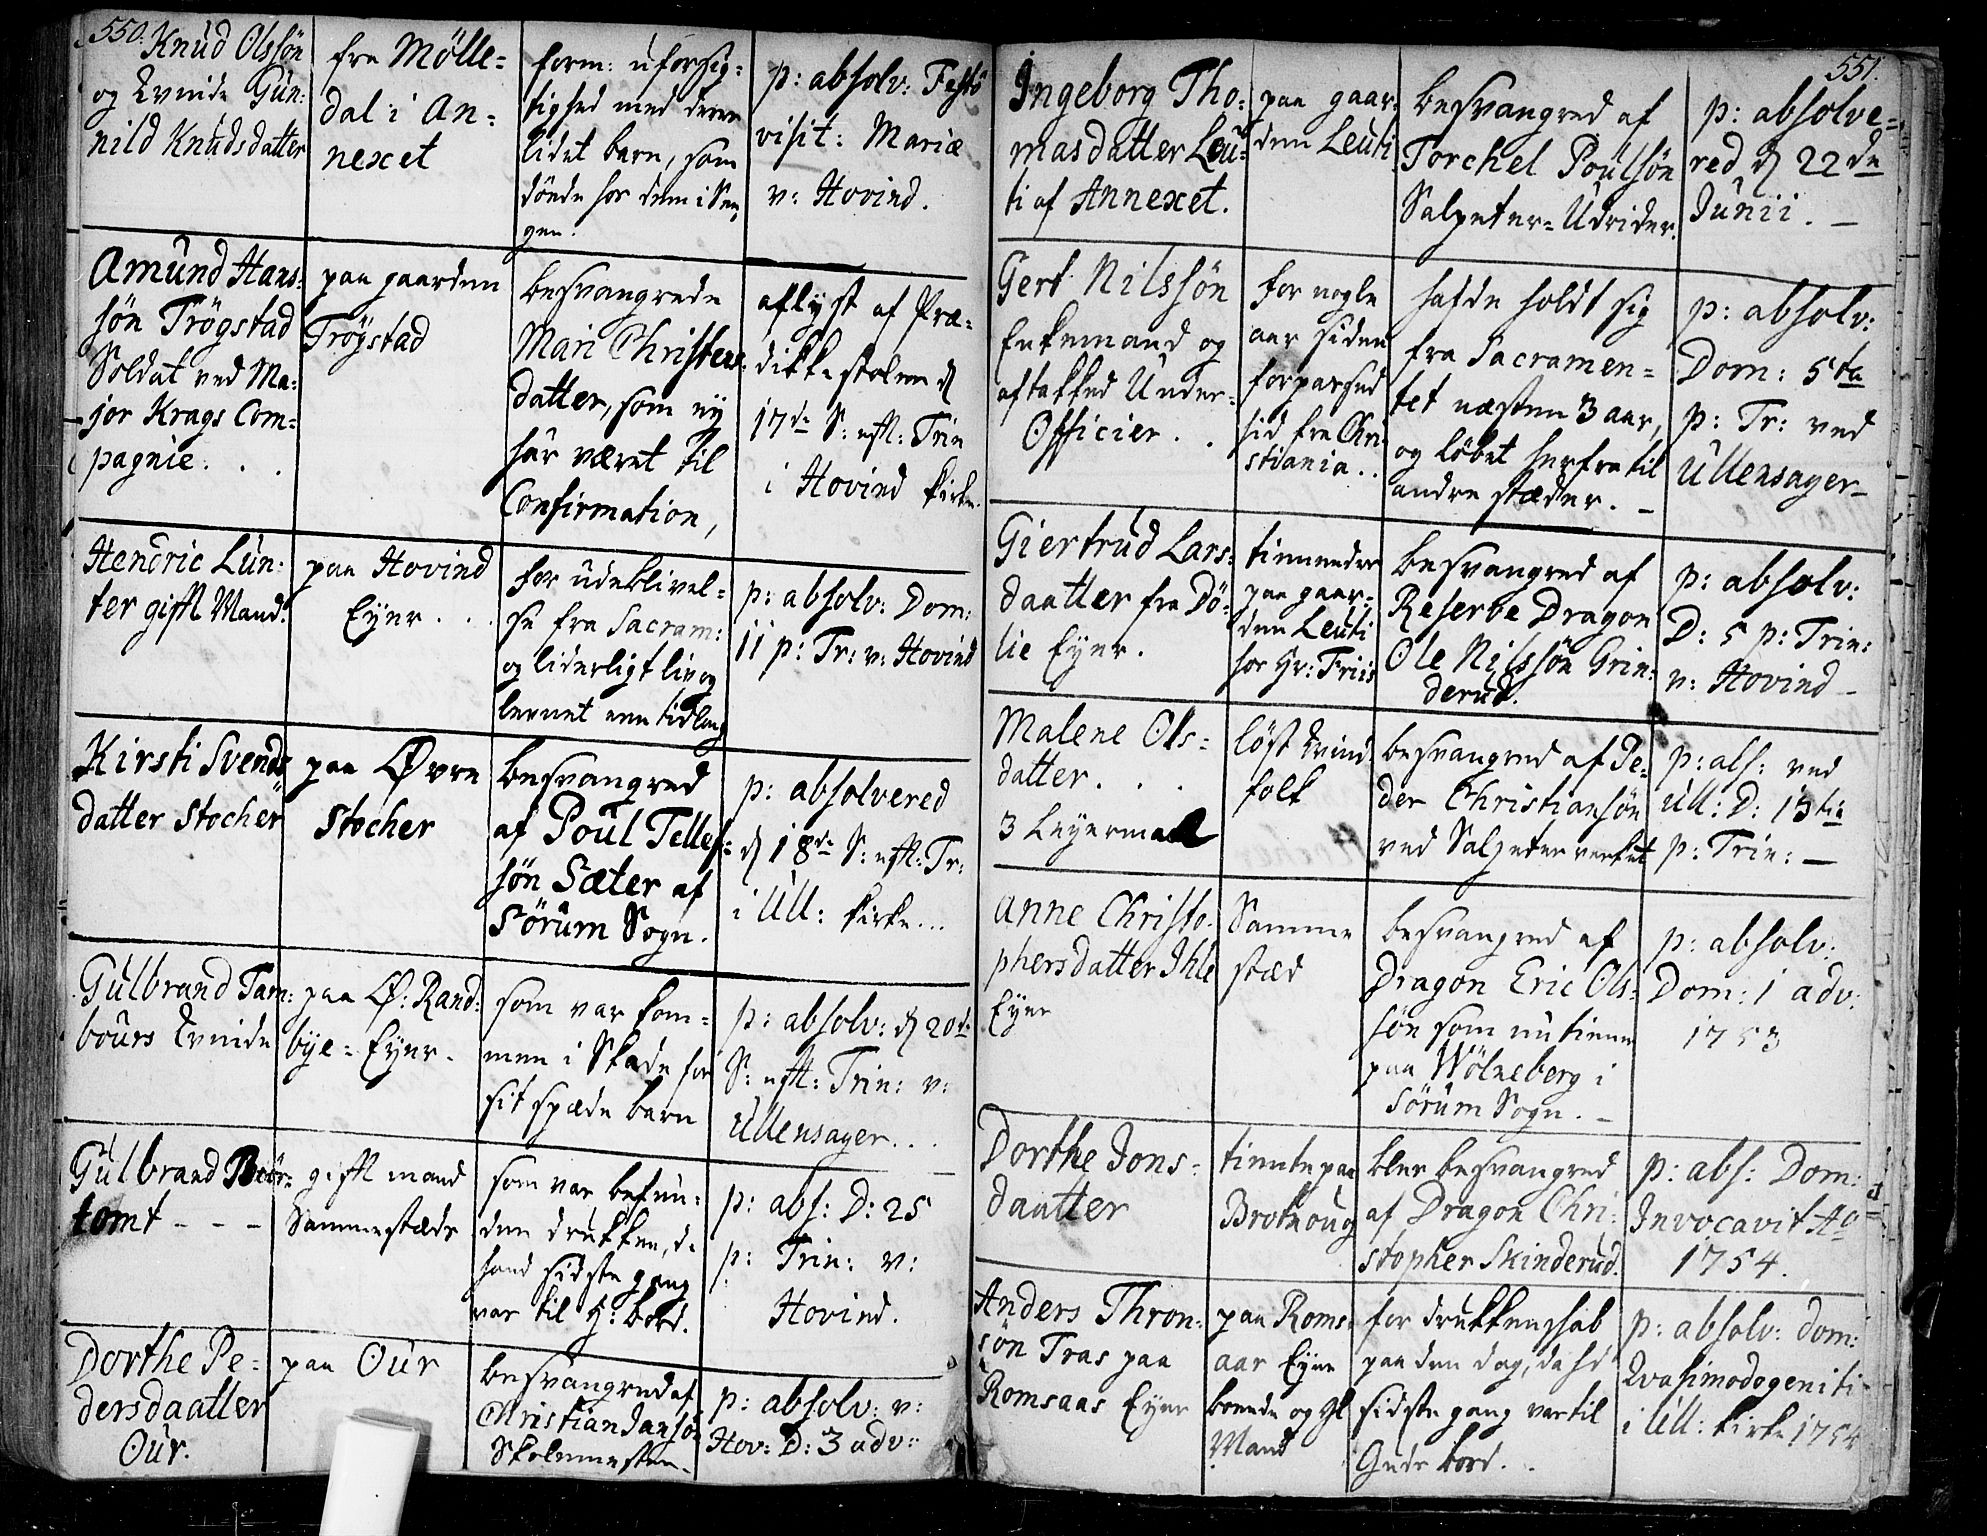 550.
Knud Olssøn
og Qvinde Gun:
nild Knudsdatter
fra Mölle=
dal i An=
nexet
form: uforsig=
tighed med deres
lidet barn, som
dönde hos dem i Sen,
gen.
p: absolv: Festo
visit: Mariæ
v: Hovind.
Amund Hans=
søn Trögstad
Soldat ved Ma=
jor Krags Com=
pagnie. . .
paa gaarden
Trögstad
besvangrede
Mari Christens
datter, som ny
har været til
Confirmation,
aflyst af Præ=
dikkestolen d
17de S: efft: Trin
i Hovind kirke.
Hendric Lun=
ter gifft Mand.
paa Hovind
Eyer . .
for udeblivel=
se fra Sacram:
og liderligt liv og
levnet een tidlang
p: absolv: Dom:
11 p: Tr: v: Hovind
Kirsti Svends
datter Stocher
paa Øvre
Stocher
besvangred
af Poul Tellef=
søn Sæter af
Sörum Sogn.
p: absolvered
d 18de S: efft: Tr:
i Ull: kirke...
Gulbrand Tam=
bours Qvinde
paa Ø: Rand=
bye = Eyer.
som var kom=
men i Skade for
sit spæde barn
p: absolv: d 20de
S: efft: Trin: v:
Ullensager...
Gulbrand Biör=
tomt - - -
gifft mand
Sammestæds
som var befun=
den drukken, d.
hand sidste gang
var til H: bord.
p: abs: D: 25
p: Trin: v:
Hovind.
Dorthe Pe=
dersdaatter
Our.
paa Our
besvangred af
Christian Jansøn
Skolemester.
p: absolv: v:
Hov: D: 3 adv:
551.
Ingeborg Tho=
masdatter Leu=
ti af Annexet.
paa gaar=
den Leuti
besvangred af
Torchel Poulsøn
Salpeter=Udrider.
p: absolve=
red d 22de
Junii. -
Gert Nilssøn
Enkemand og
aftakked Under=
Officier. .
for nogle
aar siden
forparsed
hid fra Chri
stiania..
hafde holdt sig
fra Sacramen=
tet næsten 3 aar,
og löbet herfra til
andre stæder. -
p: absolv:
Dom: 5ta
p: Tr: ved
Ullensager-
Giertrud Lars=
daatter fra Dö=
lie Eyer.
tienneder
paa gaar=
den Leuti
hos Hr: Friis
besvangred af
Reserbe Dragon
Ole Nilssøn Grin=
derud.
p: absolv:
D: 5 p: Trin:
v: Hovind-
Malene Ols=
datter . . .
3 Leyermaal
löst Qvind
folk
besvangred af Pe=
der Christiansøn
ved Salpeterverket
p: abs: ved
Ull: D: 13tia
p: Trin: -
Anne Christo=
phersdatter Ihle
Eyer
Samme
stæd
besvangred af
Dragon Eric Ols=
søn som nu tiener
paa Wölneberg i
Sörum Sogn. -
p: absolv:
Dom: 1 adv:
1753
Dorthe Jons=
daatter
tiente paa
Brotnoug
blev besvangred
af Dragon Chri=
stopher Skinderud.
p: abs: Dom:
Invocavit Ao
1754.
Anders Thron=
søn Tras paa
Romsaas Eyer
paa Roms=
aas Eyer
boende og gl
Mand
for drukkenskab
paa den dag, da hd
sidste gang var til
Guds bord. .
p: absolv: dom:
Qvasimodogeniti
i Ull: kirke 1754